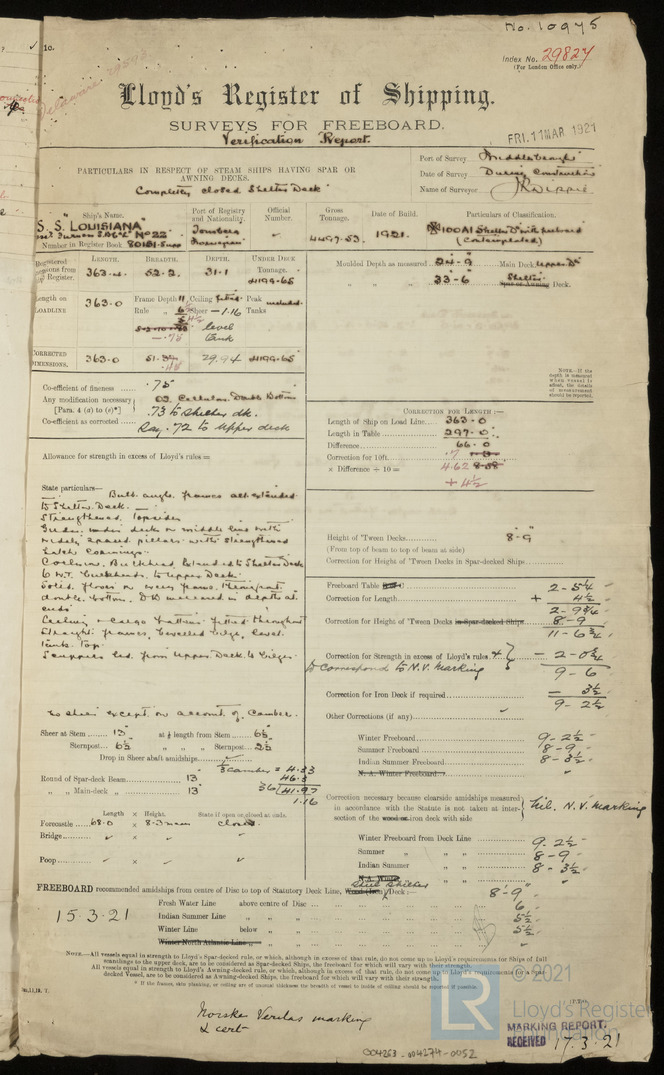 No. 10975
Index No. 29824
(For London Office only.)
Lloyd's Register of Shipping.
SURVEYS FOR FREEBOARD.
Verification Report.
FRI. 11 MAR 1921
PARTICULARS IN RESPECT OF STEAM SHIPS HAVING SPAR OR
AWNING DECKS.
Completely closed Shelter Deck
Port of Survey Middlesbrough
Date of Survey During Construction
Name of Surveyor
Ship's Name.
Port of Registry
and Nationality.
Official
Number.
Gross
Tonnage.
Date of Build.
Particulars of Classification.
S.S. "LOUISIANA"
No 22
Number in Register Book 80151
Tonsberg
Norwegian
4497.53
1921.
100A1 Shelter Dk with freeboard
(contemplated)
LENGTH. BREADTH. DEPTH. UNDER DECK
Tonnage.
Register. 363.0 52.2 31.1 4199.65
Length on
LOADLINE 363.0
Frame Depth 11 Ceiling fitted Peak included
Rule Sheer -1.16 Tanks
level
Tank
CORRECTED
DIMENSIONS. 363.0 51.39 29.94 4199.65
Moulded Depth as measured 24-9 Main Deck Upper Dk
" " " 33-6 Shelter Deck.
NOTE.—If the
depth is measured
when vessel is
afloat, the details
of measurement
should be reported.
Co-efficient of fineness ...... .75
Any modification necessary
[Para. 4 (a) to (e)*] .03 Cellular Double Bottom
Co-efficient as corrected ...... .73 to Shelter dk.
Say .72 to upper deck
CORRECTION FOR LENGTH:—
Length of Ship on Load Line ...... 363.0
Length in Table ...... 297.0
Difference ...... 66.0
Correction for 10ft. .7
× Difference ÷ 10 = 4.62
+ 4½
Allowance for strength in excess of Lloyd's rules =
State particulars—
Bulb angle frames all extended
to Shelter Deck.
Strengthened Topsides
Girder under deck on middle line with
widely spaced pillars with strengthened
hatch coamings.
Collision Bulkhead extended to Shelter Deck
6 W.T. Bulkheads to Upper Deck.
Solid floors on every frame throughout
double bottom. D.B. increased in depth at
ends.
Ceiling & cargo battens fitted throughout
Straight frames, bevelled bilge, level
tank top.
Scuppers led from Upper Deck to bilges.
No sheer except on account of Camber.
Height of 'Tween Decks 8-9
(From top of beam to top of beam at side)
Correction for Height of 'Tween Decks in Spar-decked Ships
Freeboard Table 2-5¼
Correction for Length + 4½
2-9¾
Correction for Height of 'Tween Decks in Spar-decked Ships 8-9
11-6¾
Correction for Strength in excess of Lloyd's rules & — 2-0¾
to correspond to N.V. Marking 9-6
Correction for Iron Deck if required — 3½
9-2½
Other Corrections (if any)
Winter Freeboard 9-2½
Summer Freeboard 8-9
Indian Summer Freeboard 8-3½
N. A. Winter Freeboard
Sheer at Stem 13 at ⅛ length from Stem 6½
Sternpost 6½ " " " Sternpost 2½
Drop in Sheer abaft amidships
⅓ camber = 4.33
Round of Spar-deck Beam 13 46.3
" " Main-deck " 13 36 41.97
1.16
Length × Height. State if open or closed at ends.
Forecastle 68.0 × 8.3 closed.
Bridge ✓ × ✓ ✓
Poop ✓ × ✓ ✓
Correction necessary because clearside amidships measured
in accordance with the Statute is not taken at inter-
section of the wood or iron deck with side Nil. N.V. Marking
Winter Freeboard from Deck Line 9-2½
Summer " " " 8-9
Indian Summer " " " 8-3½
N. A. Winter
FREEBOARD recommended amidships from centre of Disc to top of Statutory Deck Line, Wood (Iron) Steel Shelter Deck:— 8'-9"
15.3.21
Fresh Water Line above centre of Disc 6
Indian Summer Line " " 5½
Winter Line below " 5½
Winter North Atlantic Line " "
NOTE.—All vessels equal in strength to Lloyd's Spar-decked rule, or which, although in excess of that rule, do not come up to Lloyd's requirements for Ships of full
scantlings to the upper deck, are to be considered as Spar-decked Ships, the freeboard for which will vary with their strength.
All vessels equal in strength to Lloyd's Awning-decked rule, or which, although in excess of that rule, do not come up to Lloyd's requirements for a Spar
decked Vessel, are to be considered as Awning-decked Ships, the freeboard for which will vary with their strength.
* If the frames, skin planking, or ceiling are of unusual thickness the breadth of vessel to inside of ceiling should be reported if possible.
Norske Veritas marking
& cert
LR
© 2021
Lloyd's Register
Foundation
MARKING REPORT.
RECEIVED 17.3.21
004263-004274-0052